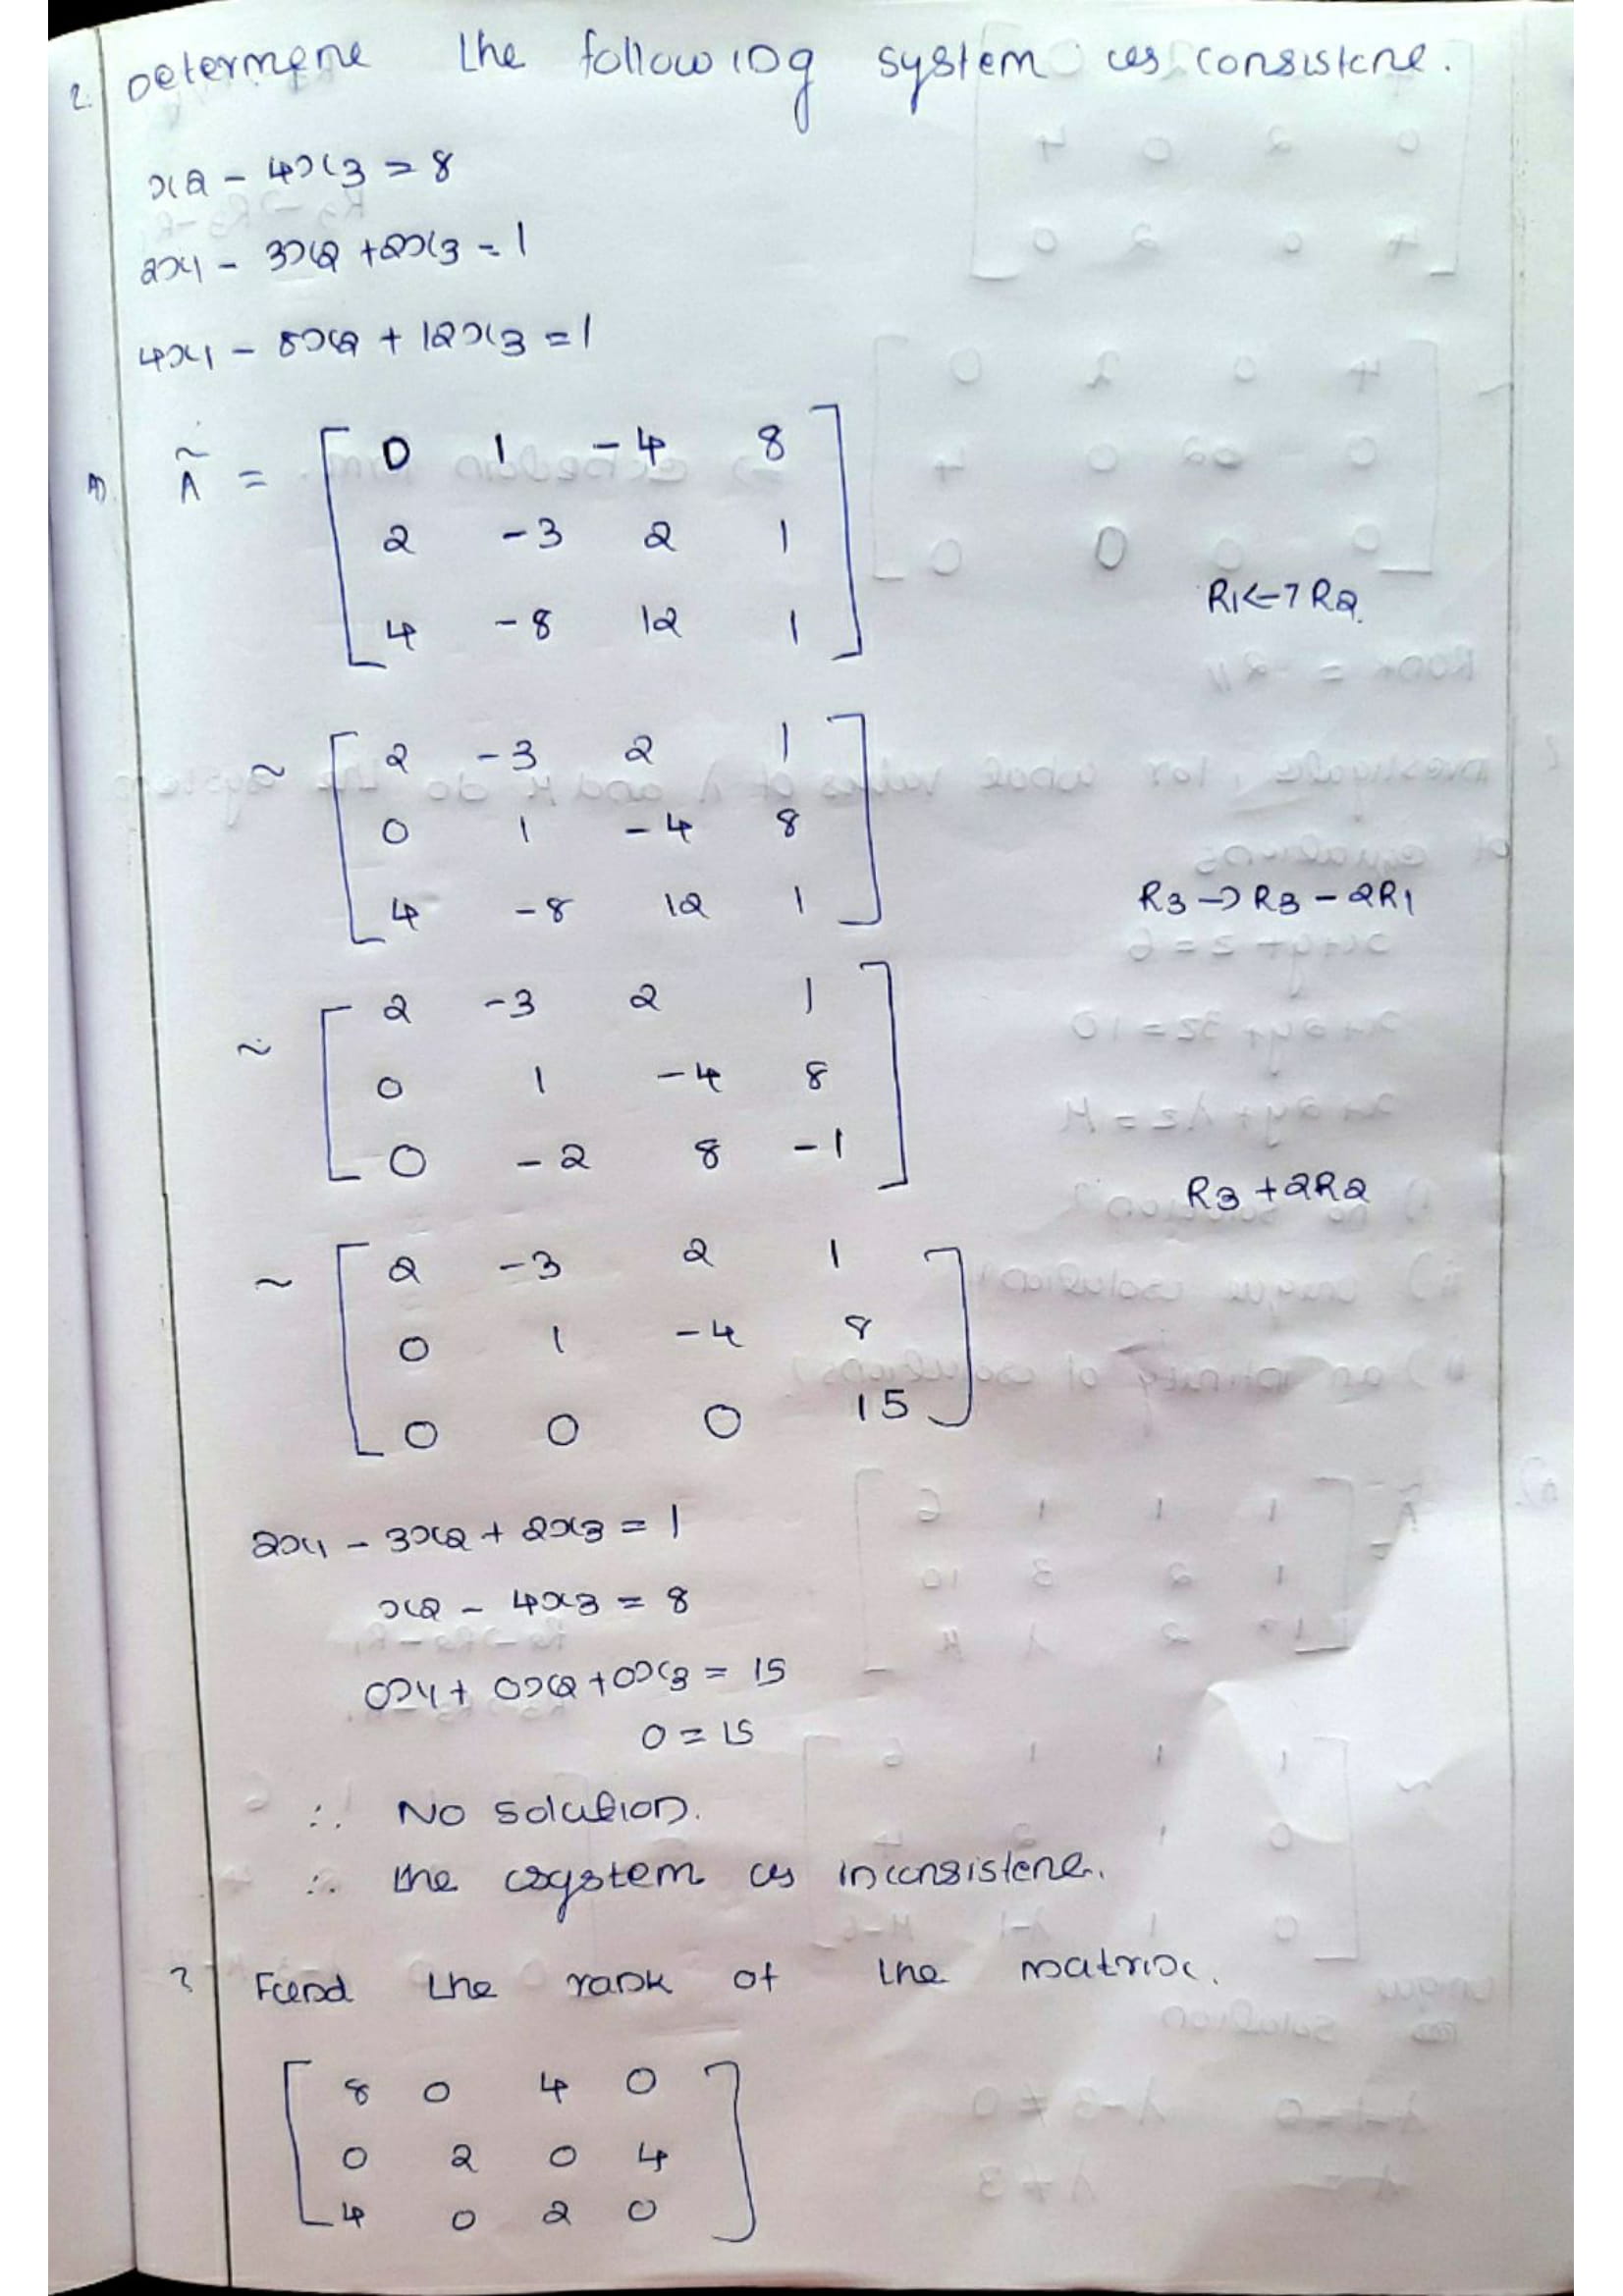 2. Determine the following system is consistene.
x2 - 4x3 = 8
2x1 - 3x2 + 2x3 = 1
4x1 - 8x2 + 12x3 = 1
A) Ã = [ 0 1 -4 8
2 -3 2 1
4 -8 12 1 ]
R1<->R2
~ [ 2 -3 2 1
0 1 -4 8
4 -8 12 1 ]
R3 -> R3 - 2R1
~ [ 2 -3 2 1
0 1 -4 8
0 -2 8 -1 ]
R3 + 2R2
~ [ 2 -3 2 1
0 1 -4 8
0 0 0 15 ]
2x1 - 3x2 + 2x3 = 1
x2 - 4x3 = 8
0x1 + 0x2 + 0x3 = 15
0 = 15
∴ No solution.
∴ the system is inconsistene.
? Find the rank of the matrix.
[ 8 0 4 0
0 2 0 4
4 0 2 0 ]